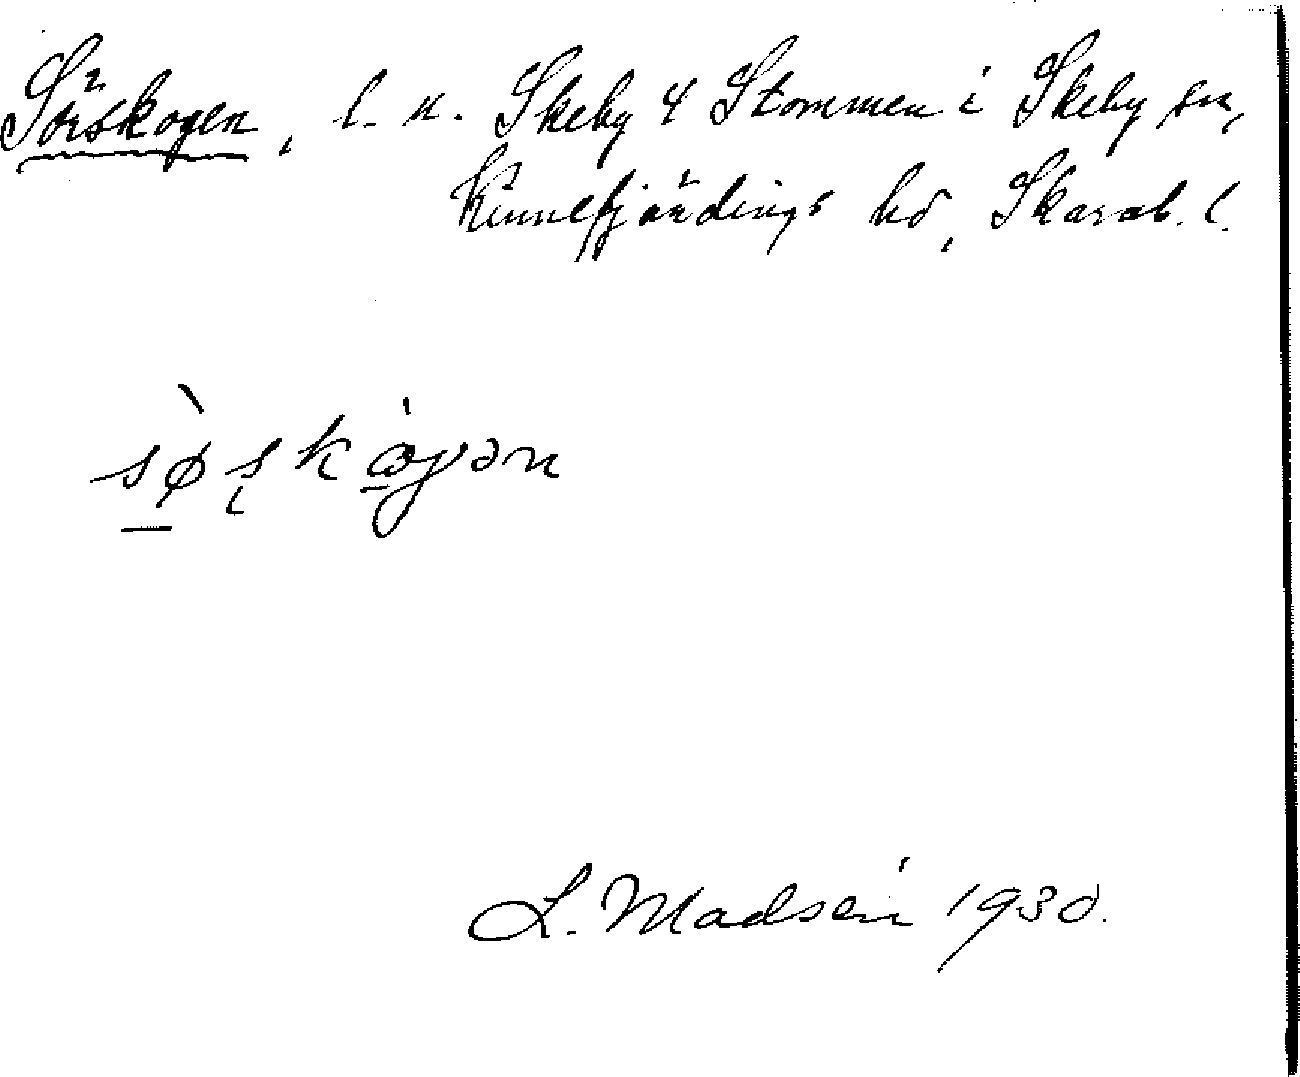 Sörskogen, l. u. Skeby 4 Stommen i Skeby sn,
Kinnefjärdings hd, Skarab. l.
sø̱̀ʂkɷ̱̀gən
L. Madsén 1930.